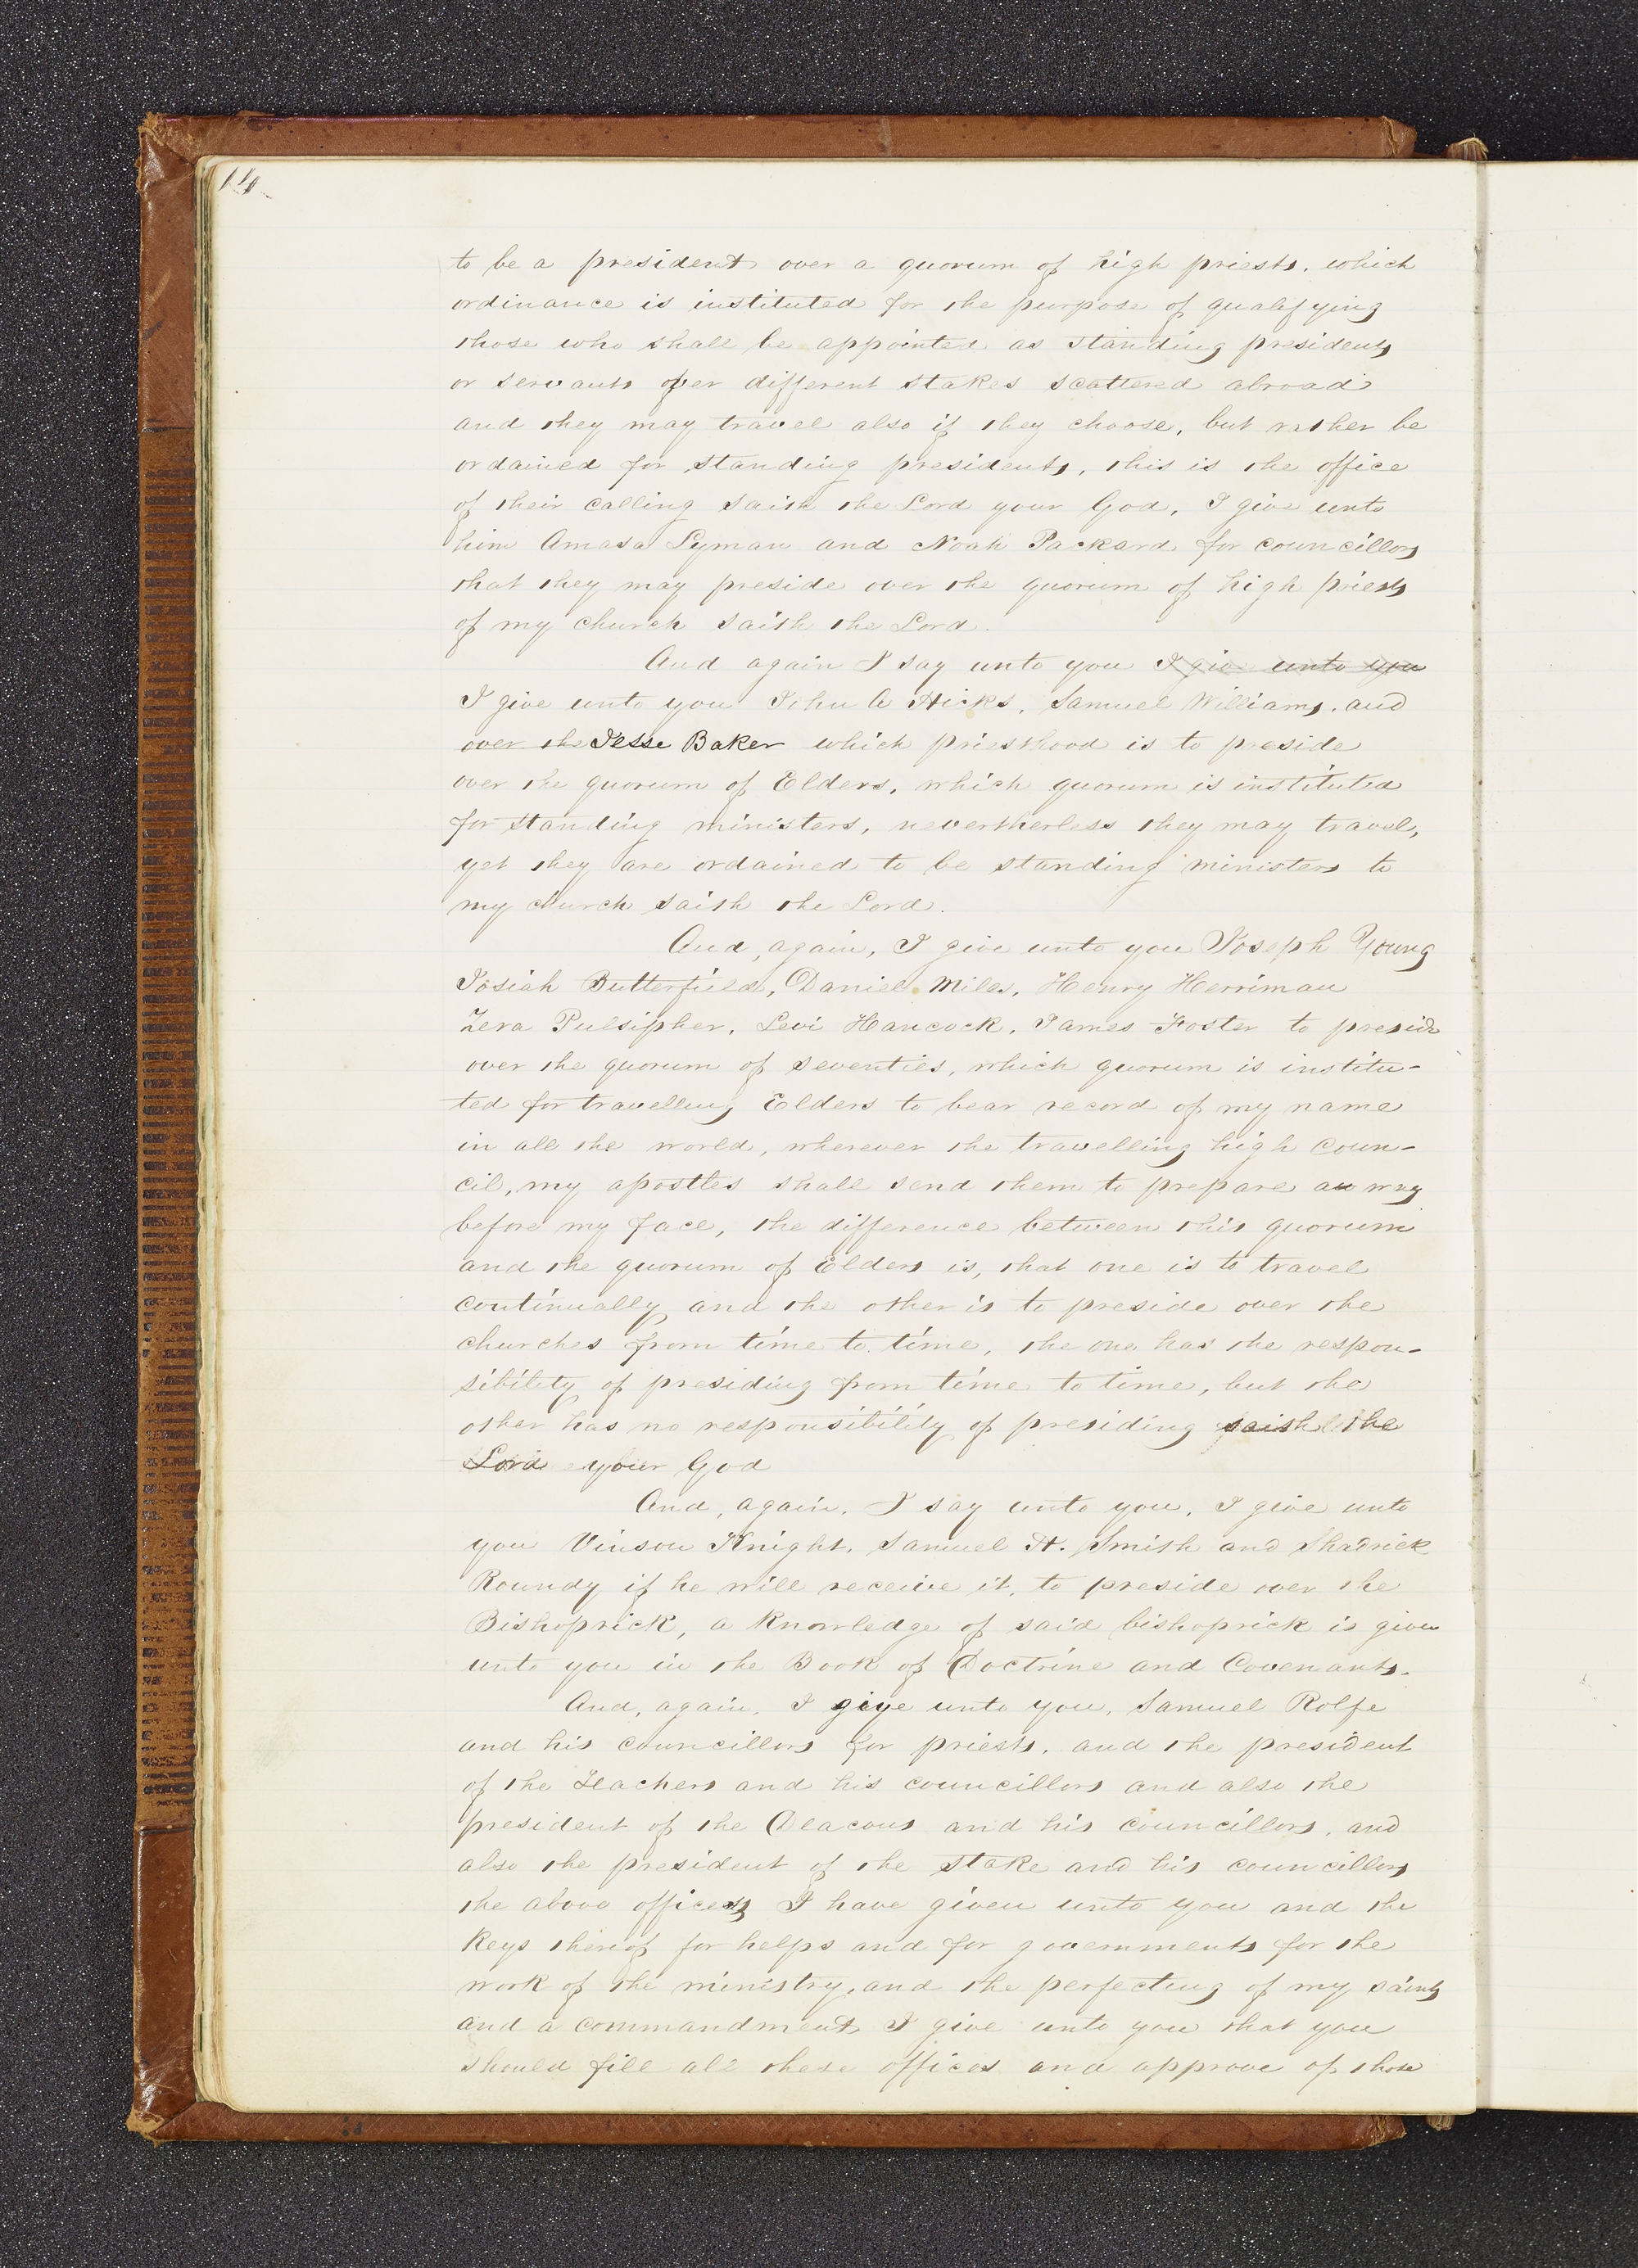 14
to be a president over a quorum of high priests, which
ordinance is instituted for the purpose of qualifying
those who shall be appointed as standing presidents
or servants over different stakes scattered abroad
and they may travel also if they choose, but rather be
ordained for standing presidents, this is the office
of their calling saith the Lord your God, I give unto
him Amasa Lyman and Noah Packard for councillors
that they may preside over the quorum of high priests
of my church saith the Lord.
And again I say unto you I give unto you
I give unto you John A Hicks, Samuel Williams, and
over the Jesse Baker which priesthood is to preside
over the quorum of Elders, which quorum is instituted
for standing ministers, nevertherless they may travel,
yet they are ordained to be standing ministers to
my church saith the Lord.
And, again, I give unto you Joseph Young
Josiah Butterfield, Daniel Miles, Henry Herriman
Zera Pulsipher, Levi Hancock, James Foster to preside
over the quorum of seventies, which quorum is institu-
ted for travelling Elders to bear record of my name
in all the world, wherever the travelling high coun-
cil, my apostles shall send them to prepare a way
before my face, the difference between this quorum
and the quorum of Elders is, that one is to travel
continually and the other is to preside over the
churches from time to time, the one has the respon-
sibility of presiding from time to time, but the
other has no responsibility of presiding saith the
Lord your God
And, again, I say unto you, I give unto
you Vinson Knight, Samuel H. Smith and Shadrick
Roundy if he will receive it, to preside over the
Bishoprick, a knowledge of said bishoprick is given
unto you in the Book of Doctrine and Covenants.
And, again, I give unto you, Samuel Rolfe
and his councillors for priests, and the president
of the Teachers and his councillors and also the
president of the Deacons and his councillors, and
also the president of the stake and his councillors
the above offices I have given unto you and the
keys thereof for helps and for governments for the
work of the ministry, and the perfecting of my saints
and a commandment I give unto you that you
should fill all these offices and approve of those